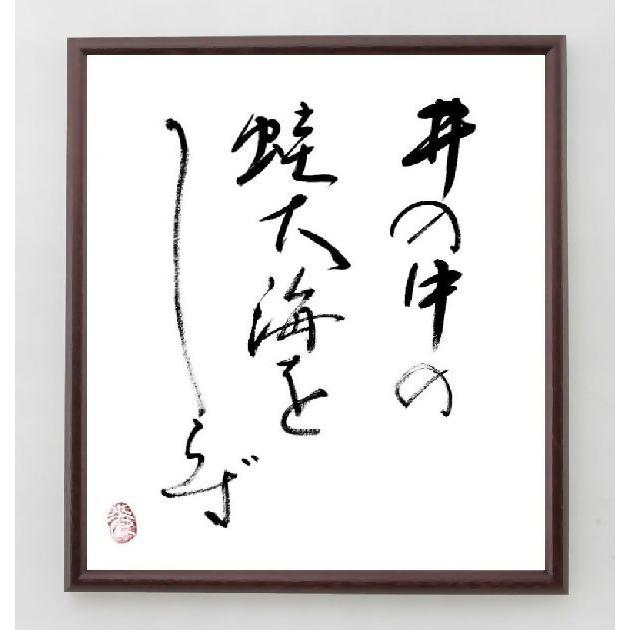 井の中の
蛙大海を
しらず